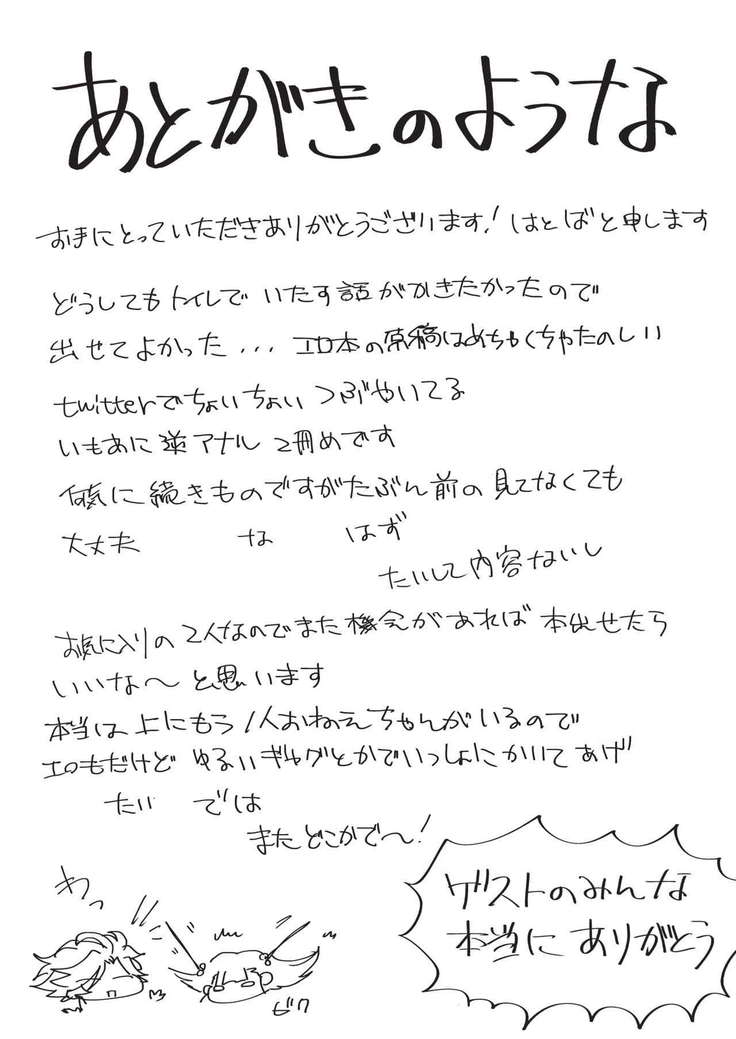 あとがきのような
お手にとっていただきありがとうございます! はとばと申します
どうしてもトイレで いたす話がかきたかったので
出せてよかった... エロ本の原稿はめちゃくちゃたのしい
twitterでちょいちょいつぶやいてる
いもあに逆アナル 2冊めです
何気に続きものですがたぶん前の見てなくても
大丈夫 な はず
たいして内容ないし
お気に入りの2人なのでまた機会があれば 本出せたら
いいな〜 と思います
本当は上にもう1人おねえちゃんがいるので
エロもだけど ゆるいギャグとかでいっしょにかいてあげ
たい では
またどこかで〜!
ゲストのみんな
本当に ありがとう
わっ
ビク